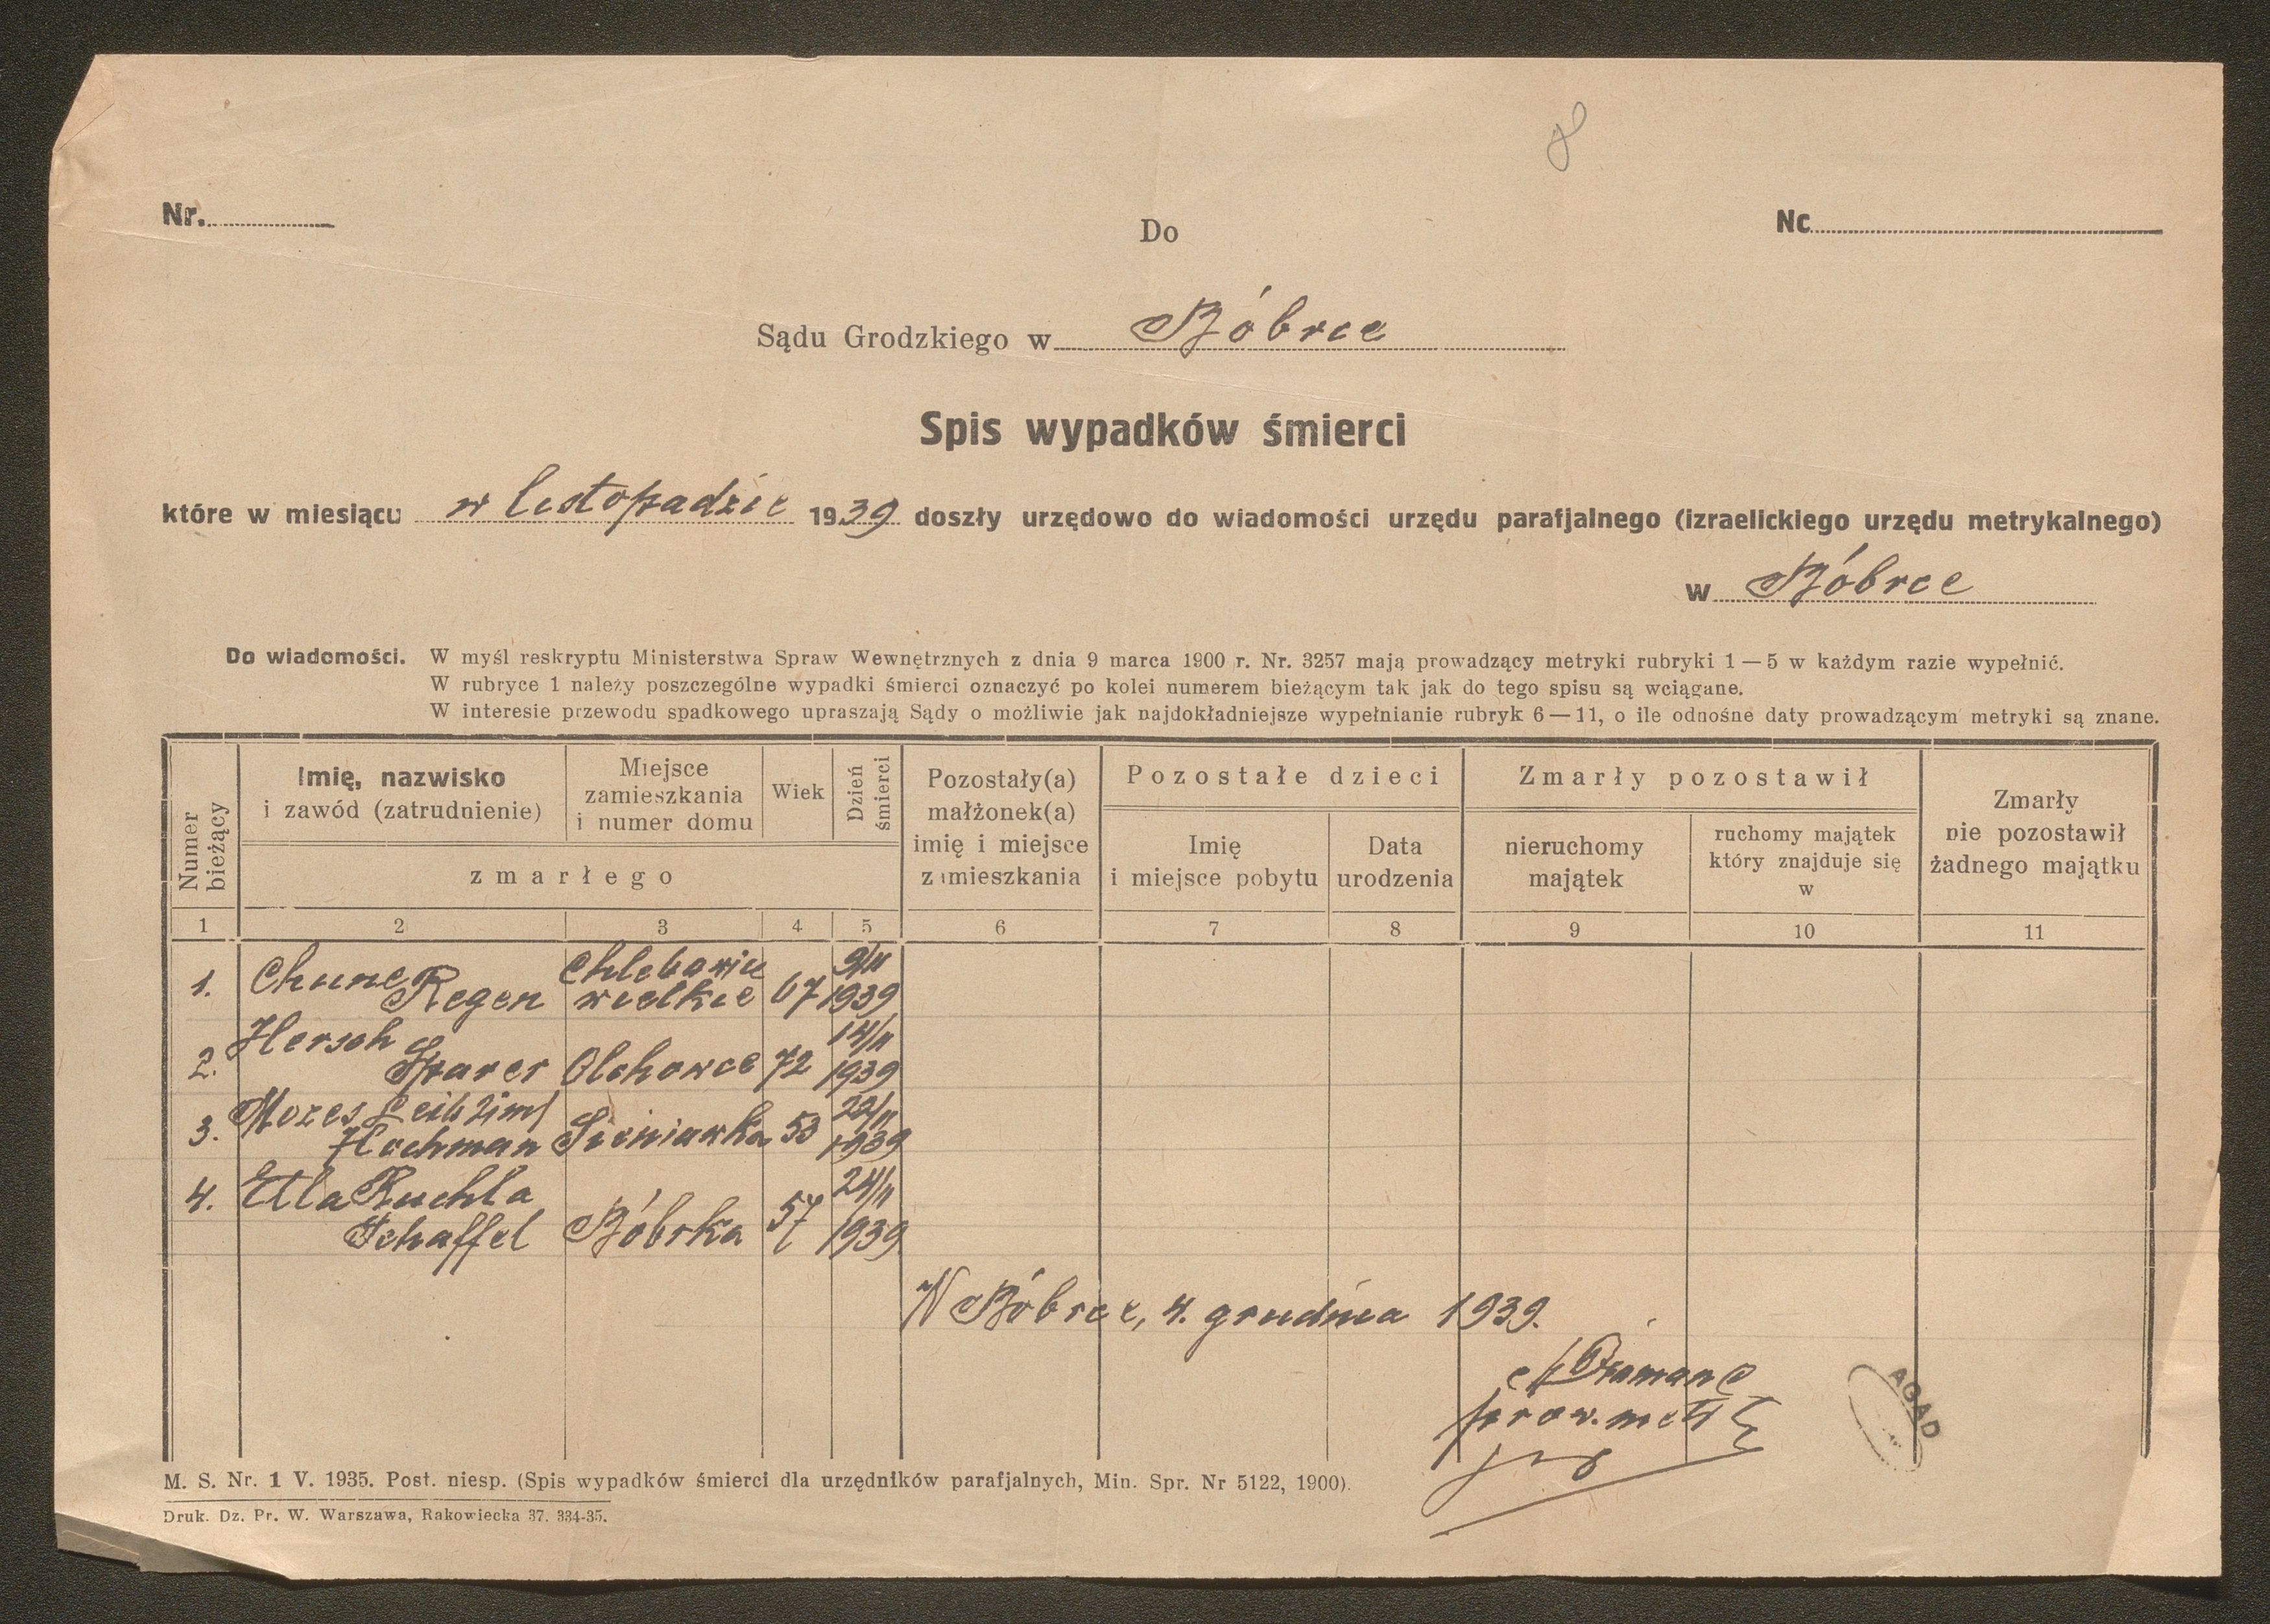 8
Nr.
Do
Nc
Sądu Grodzkiego w Bóbrce
Spis wypadków śmierci
które w miesiącu w listopadzie 1939 doszły urzędowo do wiadomości urzędu parafjalnego (izraelickiego urzędu metrykalnego)
w Bóbrce
Do wiadomości. W myśl reskryptu Ministerstwa Spraw Wewnętrznych z dnia 9 marca 1900 r. Nr. 3257 mają prowadzący metryki rubryki 1—5 w każdym razie wypełnić.
W rubryce 1 należy poszczególne wypadki śmierci oznaczyć po kolei numerem bieżącym tak jak do tego spisu są wciągane.
W interesie przewodu spadkowego upraszają Sądy o możliwie jak najdokładniejsze wypełnianie rubryk 6—11, o ile odnośne daty prowadzącym metryki są znane.
Numer bieżący
Imię, nazwisko
i zawód (zatrudnienie)
Miejsce
zamieszkania
i numer domu
Wiek
Dzień śmierci
zmarłego
Pozostały(a)
małżonek(a)
imię i miejsce
zamieszkania
Pozostałe dzieci
Imię
i miejsce pobytu
Data
urodzenia
Zmarły pozostawił
nieruchomy
majątek
ruchomy majątek
który znajduje się
w
Zmarły
nie pozostawił
żadnego majątku
1 2 3 4 5 6 7 8 9 10 11
1. Chune Regen Chlebowice wielkie 67 9/11 1939
2. Hersch Sparer Olchowce 72 14/11 1939
3. Mozes Leib Hochman Sieniawka 53 22/11 1939
4. Etla Ruchla Schaffel Bóbrka 57 24/11 1939
W Bóbrce, 4. grudnia 1939.
prow. metr
AGAD
M. S. Nr. 1 V. 1935. Post. niesp. (Spis wypadków śmierci dla urzędników parafjalnych, Min. Spr. Nr 5122, 1900).
Druk. Dz. Pr. W. Warszawa, Rakowiecka 37. 334-35.